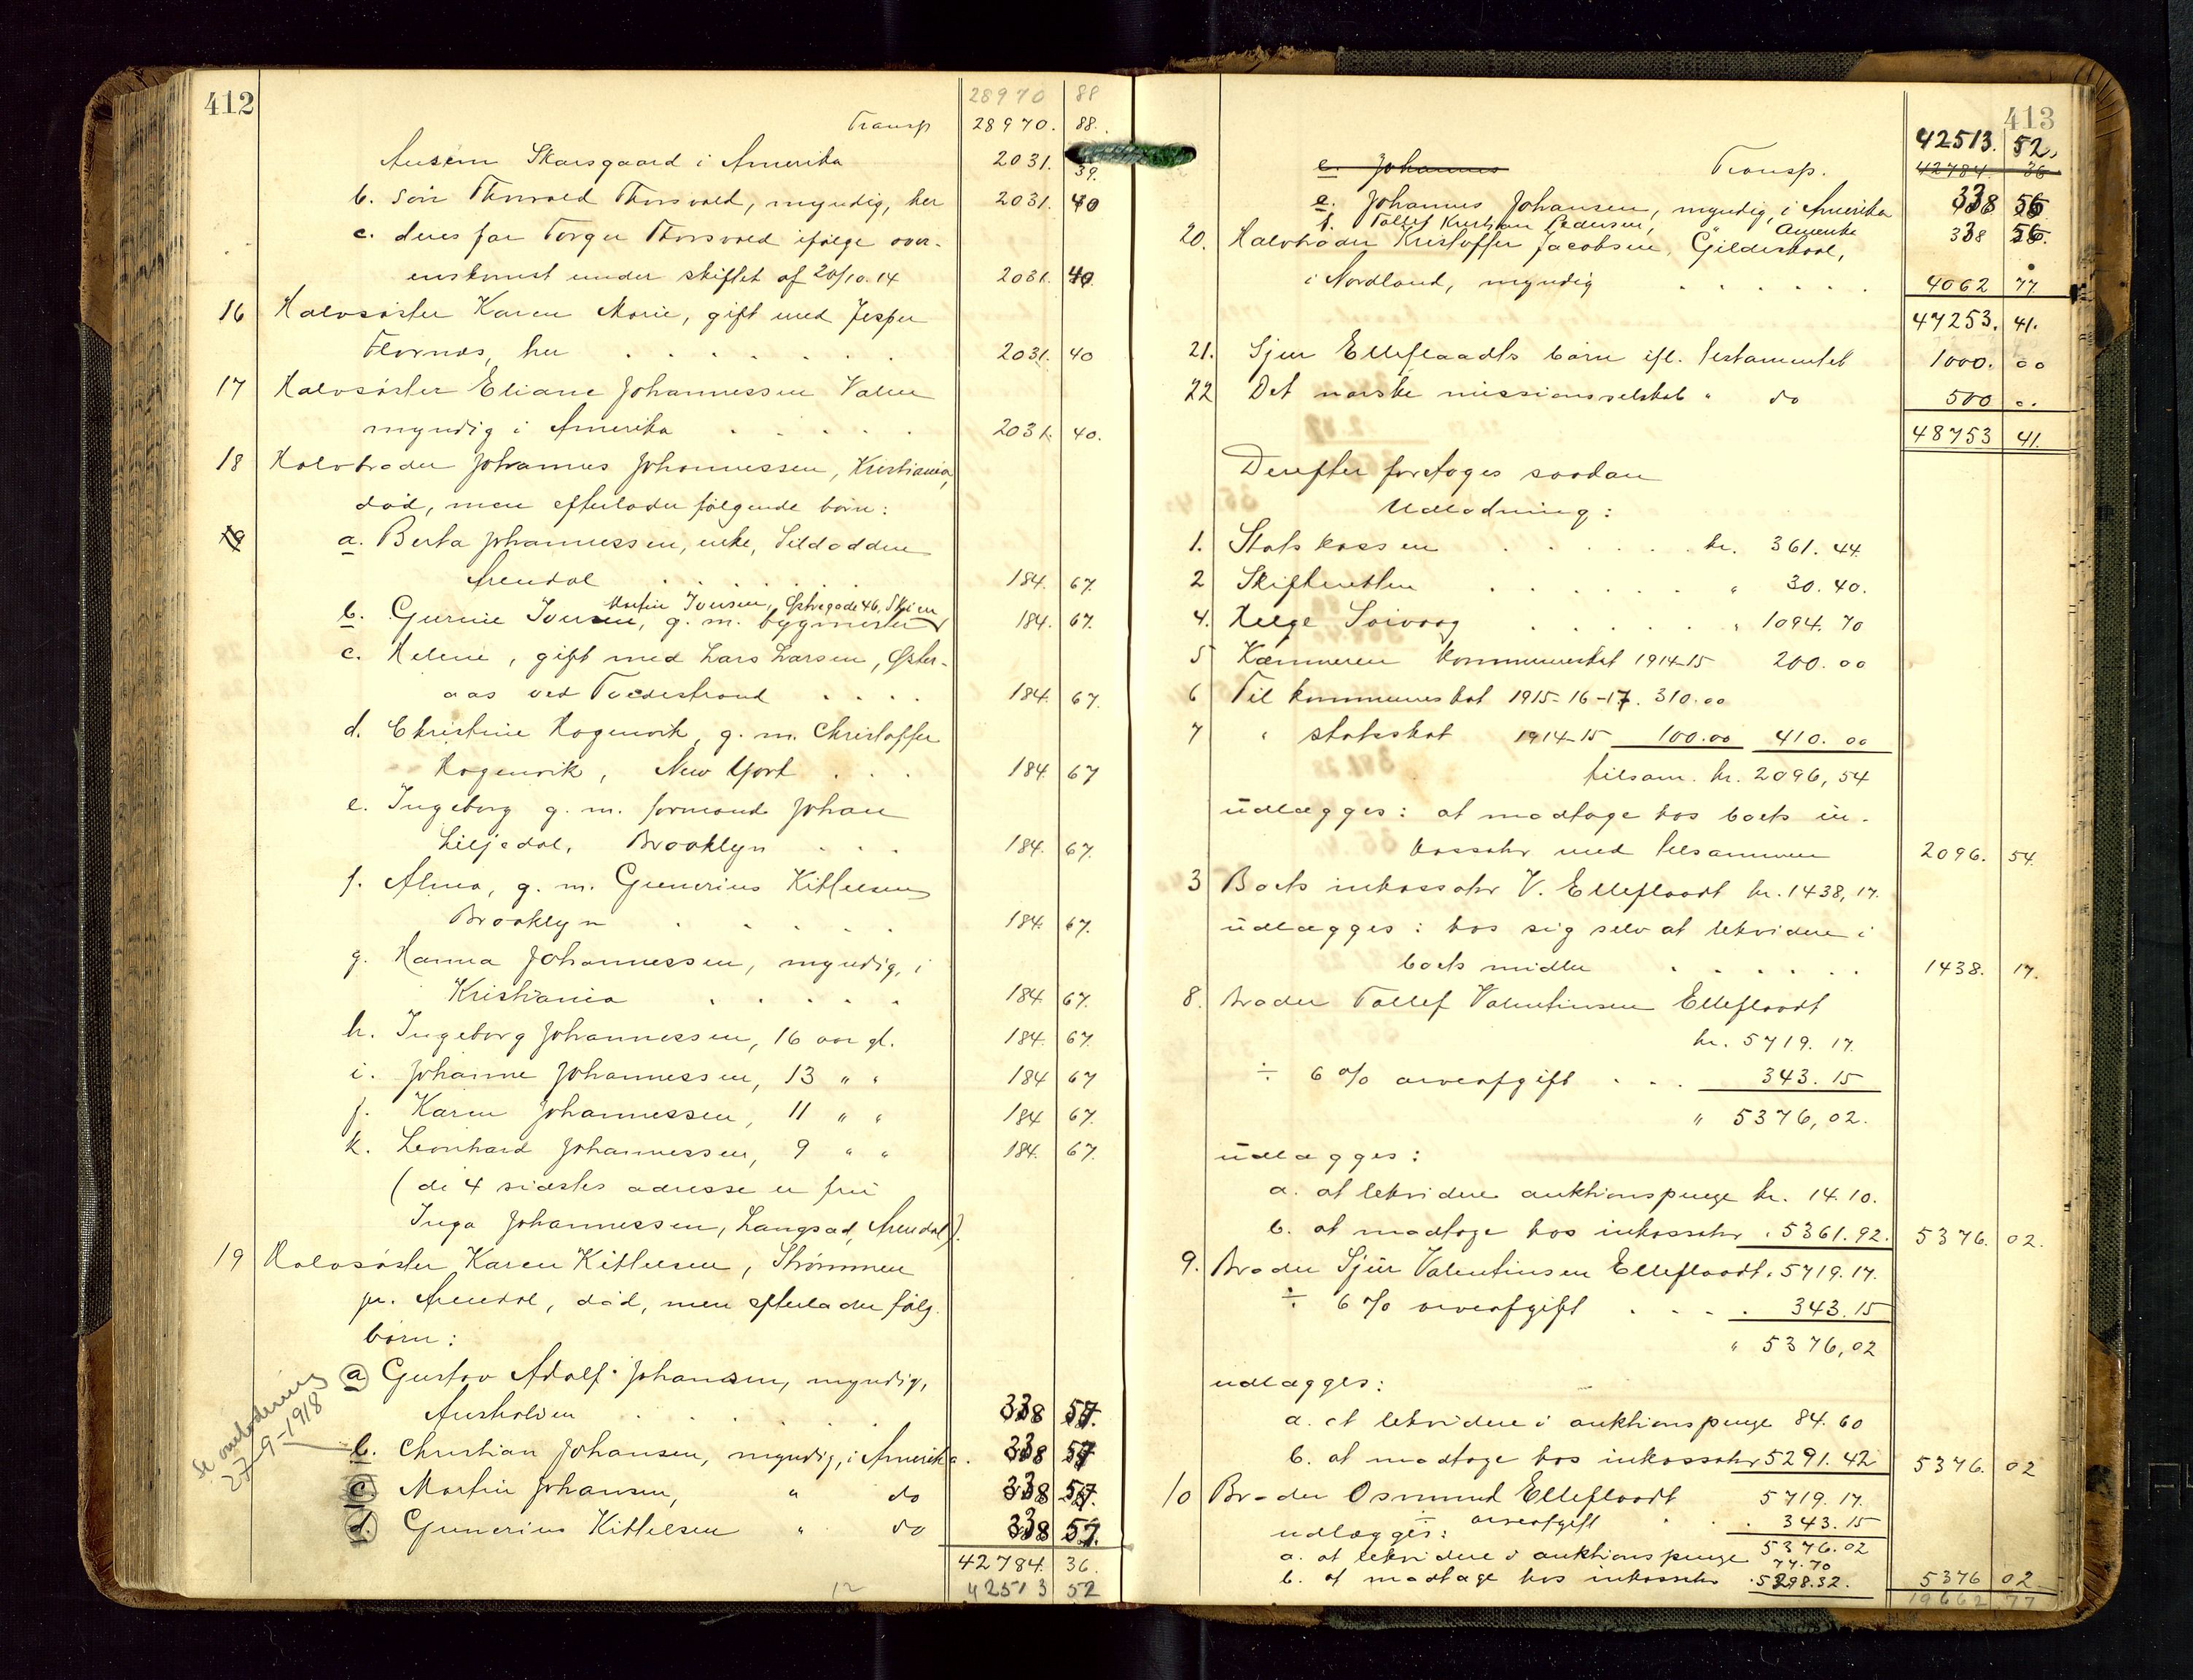 412
28970 88
Transp 28970. 88.
Skarsgaard i Amerika 2031. 39.
b. Søn Thorvald Thorsvold, myndig, her 2031. 40
c. deres far Torger Thorsvold ifølge over-
enskomst under skiftet af 20/10.14 2031. 40.
16 Halvsøster Karen Marie, gift med Jesper
her 2031. 40
17 Halvsøster Eliane Johannessen Valne
myndig i Amerika 2031. 40.
18 Halvbroder Johannes Johannessen, Kristiania,
død, men efterlader følgende børn:
19 a. Berta Johannessen, enke,
Arendal 184. 67.
Martin Iversen, Østregade 46, Skien
b. Gurine Iversen, g. m. bygmester 184. 67.
c. Helene, gift med Lars Larsen, Øster-
aas ved Tvedestrand 184. 67.
d. Christine Hagenvik, g. m. Christoffer
Hagenvik, New York 184. 67
e. Ingeborg g. m. formand Johan
Liljedal, Brooklyn 184. 67.
f. Alma, g. m. Gunerius Kittelsen
Brooklyn 184. 67.
g. Hanna Johannessen, myndig, i
Kristiania 184. 67.
h. Ingeborg Johannessen, 16 aar gl. 184. 67.
i. Johanne Johannessen, 13 " " 184 67
j. Karen Johannessen, 11 " " 184 67.
k. Leonhard Johannessen, 9 " " 184. 67.
(de 4 sidstes adresse er fru
Inga Johannessen, Langsæd, Arendal).
19 Halvsøster Karen Kittelsen, Strømmen
pr. Arendal, død, men efterlader følg.
børn:
a Gustav Adolf Johansen, myndig,
338 57.
Se omlodning
27-9-1918
b. Christian Johansen, myndig, i Amerika. 338 57
c. Martin Johansen, " do 338 57.
d. Gunerius Kittelsen " do 338 57.
42784. 36.
12 42513 52
413
42513. 52.
e. Johannes Transp. 42784. 36
e. Johannes Johansen, myndig, i Amerika 338 56
f. Tallef Kristian Pedersen, Amerika 338 56.
20. Halvbroder Kristoffer Jacobsen, Gildeskaal,
i Nordland, myndig 4062 77.
47253. 41.
21. Sjur Elleflaadts børn ifl. testamentet 1000. 00
22 Det norske missionsselskab " do 500 00.
48753 41.
Derefter foretages saadan
Udlodning:
1. Statskassen kr. 361. 44.
2 Skifteretten " 30. 40.
4. Helge " 1094. 70
5 Kæmneren kommuneskat 1914-15 200. 00
6 Til kommuneskat 1915-16-17. 310.00
7 " statsskat 1914-15 100.00 410. 00
tilsam. kr. 2096,54
udlægges: at modtage hos boets in-
kassator med tilsammen 2096. 54.
3 Boets inkassator V. Elleflaadt kr. 1438,17.
udlægges: hos sig selv at lekvidere i
boets midler 1438. 17.
8. Broder Tallef Valentinsen Elleflaadt
kr. 5719. 17.
÷ 6 % arveafgift 343. 15
" 5376,02.
udlægges:
a. at lekvidere auktionspenge kr. 14.10.
b. at modtage hos inkassator " 5361.92. 5376. 02.
9. Broder Sjur Valentinsen Elleflaadt. 5719.17.
÷ 6 % arveafgift 343. 15
" 5376,02
udlægges:
a. at lekvidere i auktionspenge 84.60
b. at modtage hos inkassator 5291.42 5376. 02
10 Broder Osmund Elleflaadt 5719. 17.
÷ arveafgift 343. 15
udlægges: 5376.02
a. at lekvidere i auktionspenge 77.70
b. at modtage hos inkassator 5298.32. 5376 02
19662 77